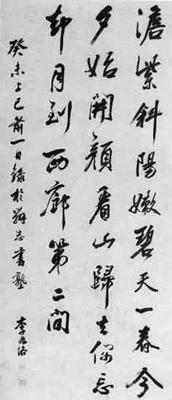 澹紫斜陽嫩碧天一春今
夕始開顏看山歸去偶忘
却月到西廊第二間
癸未上巳前一日錄於辨志書塾
李兆洛